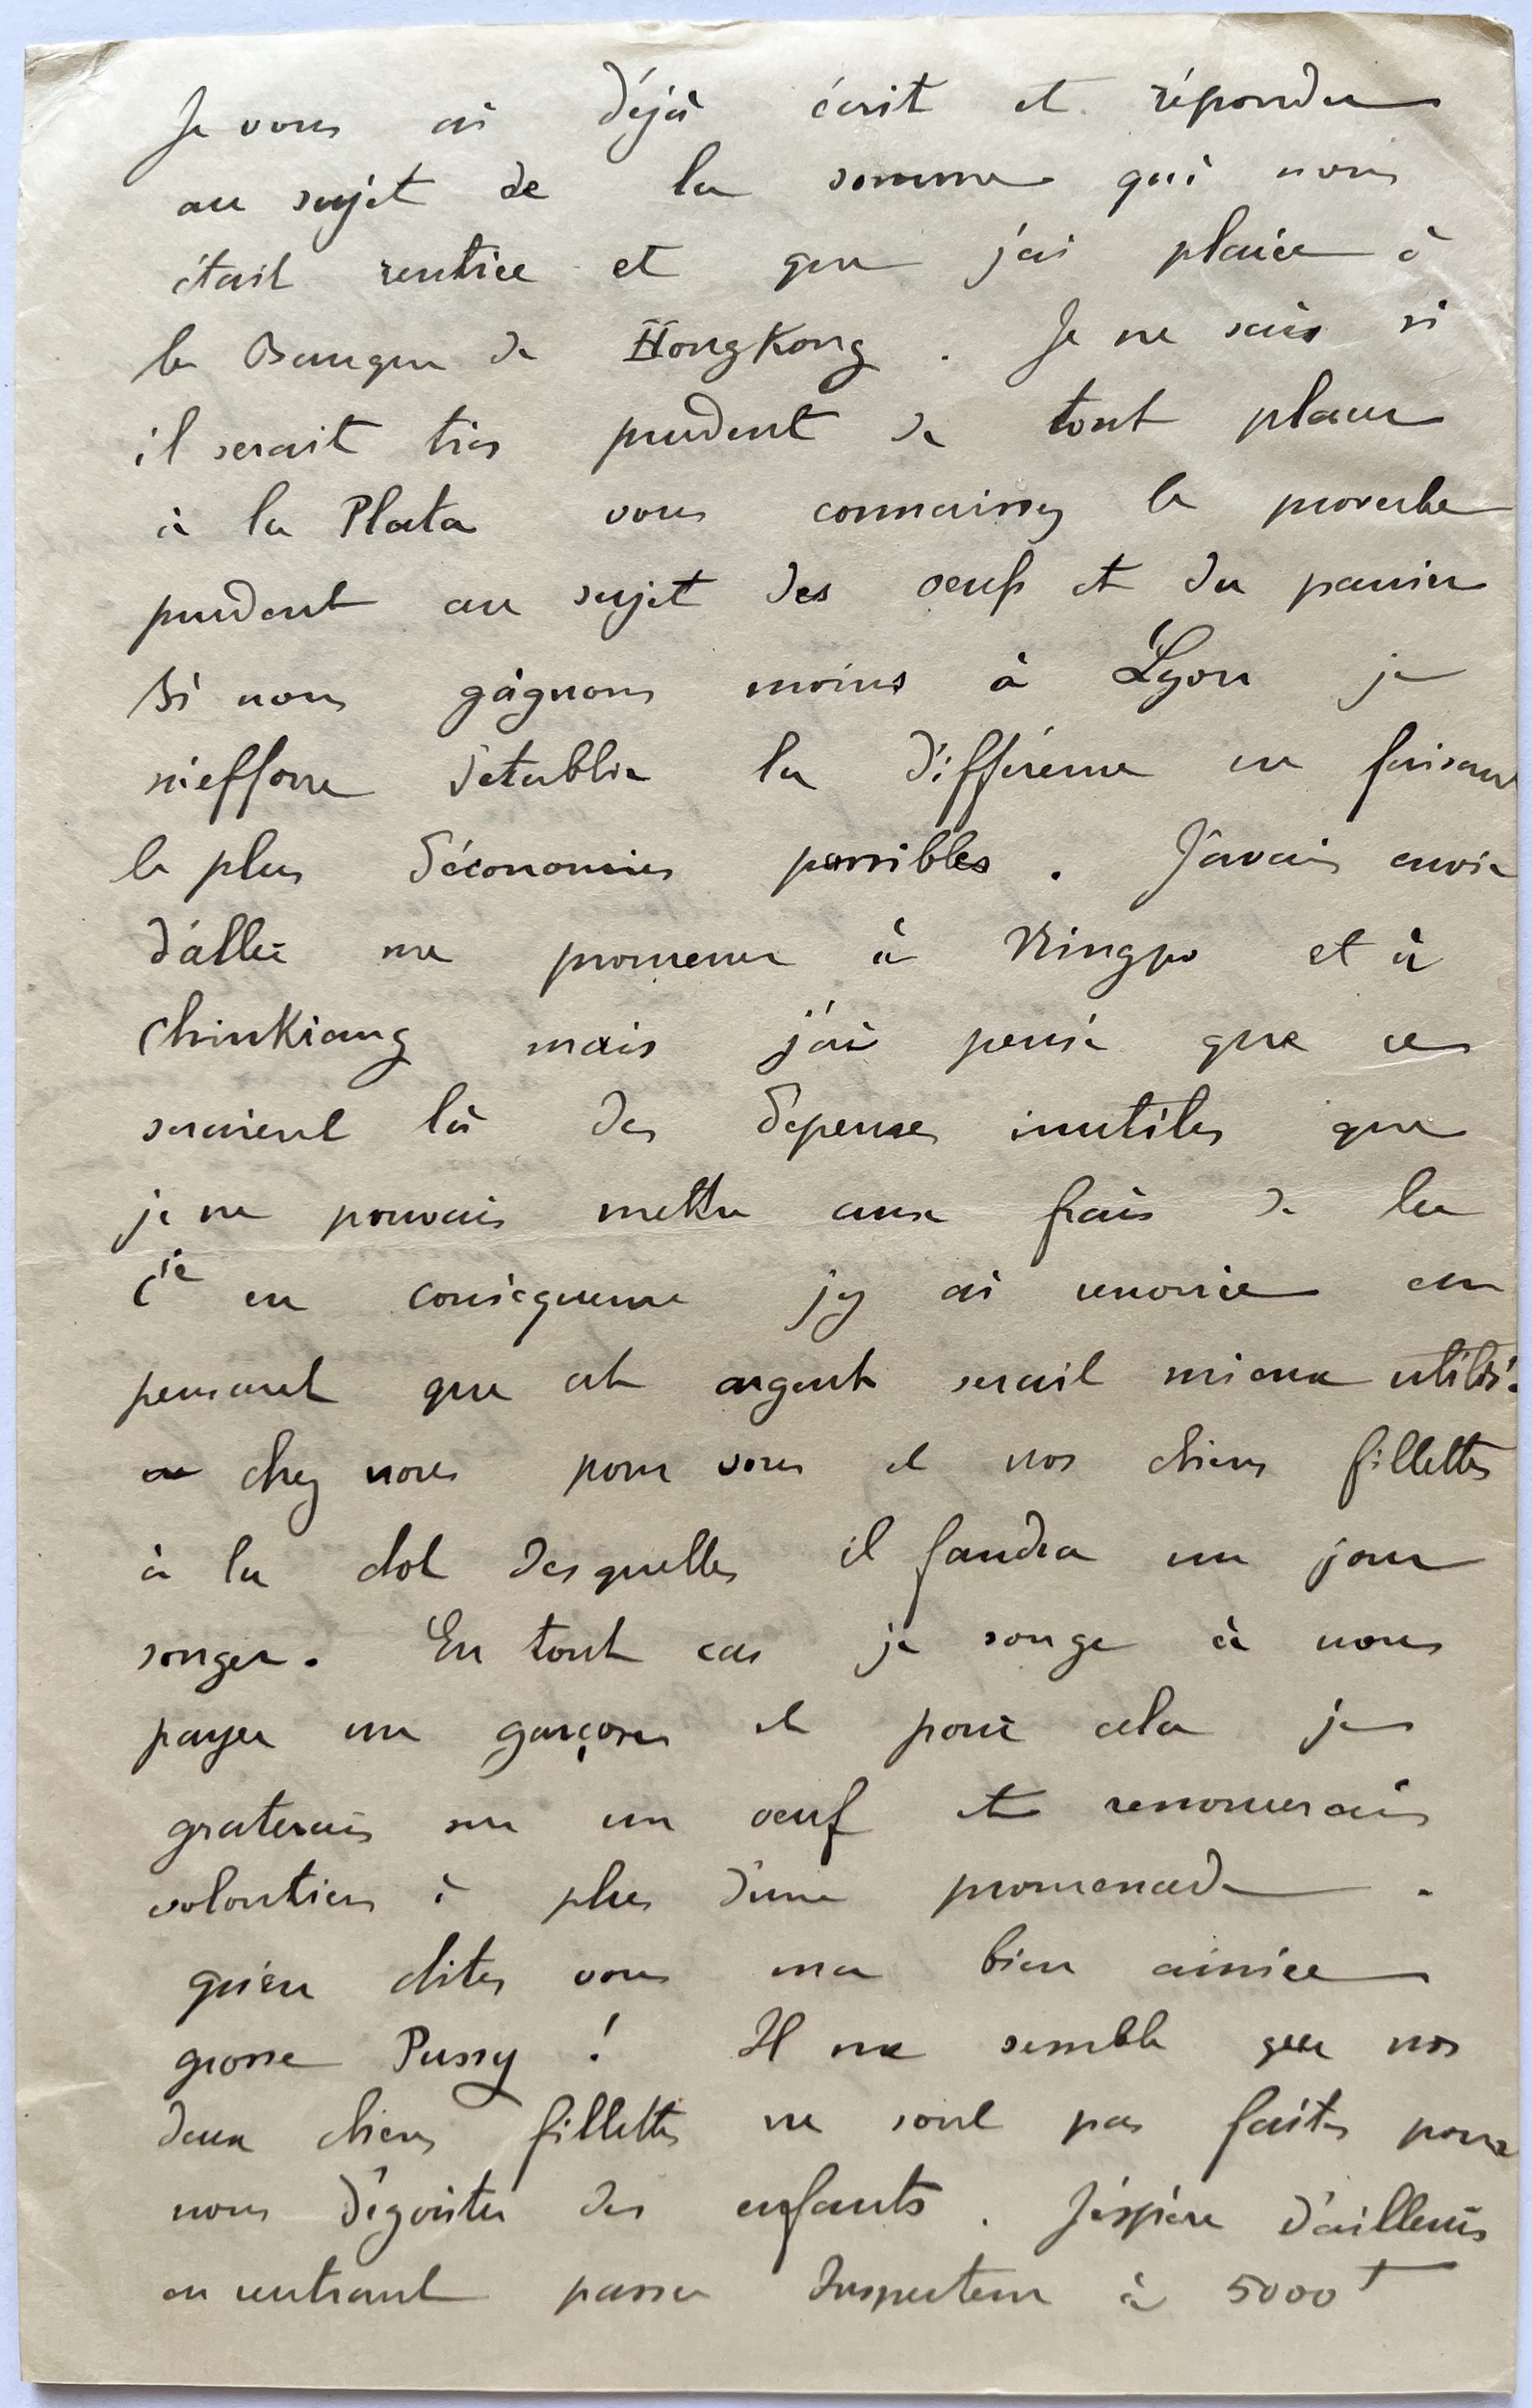 Je vous ai déjà écrit et répondu
au sujet de la somme qui nous
était rentrée et que j'ai placée à
la Banque de HongKong. Je ne sais si
il serait très prudent de tout placer
à la Plata vous connaissez le proverbe
prudent au sujet des oeufs et du panier
Si nous gagnons moins à Lyon je
m'efforce d'établir la différence en faisant
le plus d'économies possibles. J'avais envie
d'aller me promener à Ningpo et à
Chinkiang mais j'ai pensé que ce
seraient là des dépenses inutiles que
je ne pouvais mettre aux frais de la
Cie en conséquence j'y ai renoncé en
pensant que cet argent serait mieux utilisé
chez nous pour vous et nos chères fillettes
à la dot desquelles il faudra un jour
songer. En tout cas je songe à nous
payer un garçon et pour cela je
graterais sur un oeuf et renoncerais
volontiers à plus d'une promenade.
qu'en dites vous ma bien aimée
grosse Pussy ! Il me semble que nos
deux chères fillettes ne sont pas faites pour
nous dégoûter des enfants. J'éspère d'ailleurs
en rentrant passer Inspecteur à 5000f